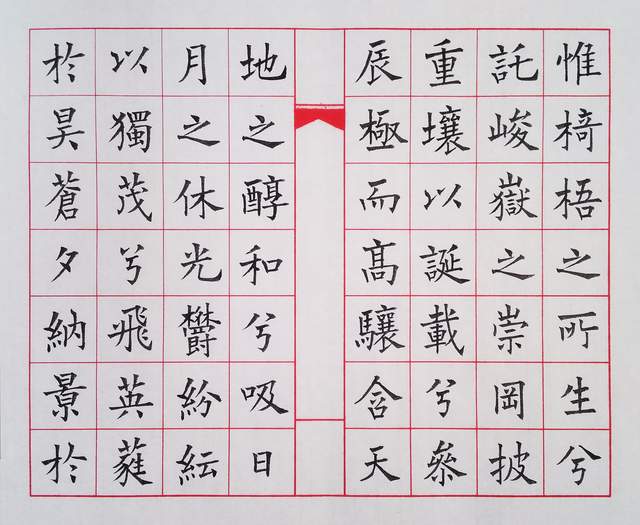 惟椅梧之所生兮
託峻嶽之崇岡披
重壤以誕載兮叅
辰極而高驤含天
地之醇和兮吸日
月之休光鬱紛紜
以獨茂兮飛英蕤
於昊蒼夕納景於